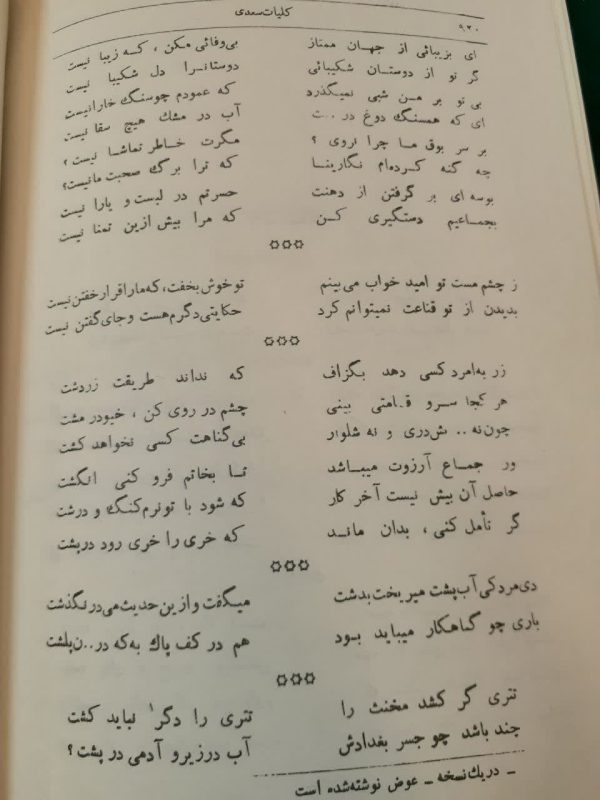 ۹۲۰ کلیات سعدی
ای بزیبائی از جهان ممتاز بی‌وفائی مکن ، که زیبا نیست
گر تو از دوستان شکیبائی دوستانرا دل شکیبا نیست
بی تو بر من شبی نمیگذرد که عمودم چوسنگ خارانیست
ای که همسنگ دوغ در ...ت آب در مشك هیچ سقا نیست
بر سر بوق ما چرا نروی ؟ مگرت خاطر تماشا نیست ؟
چه گنه کرده‌ام نگارینا که ترا برگ صحبت مانیست؟
بوسه ای بر گرفتن از دهنت حسرتم در لبست و یارا نیست
بجماعیم دستگیری کن که مرا بیش ازین تمنا نیست
۞۞۞
ز چشم مست تو امید خواب می‌بینم تو خوش بخفت، که مارا قرار خفتن نیست
بدیدن از تو قناعت نمیتوانم کرد حکایتی دگرم هست و جای گفتن نیست
۞۞۞
زر به‌امرد کسی دهد بگزاف که نداند طریقت زردشت
هر کجا سرو قامتی بینی چشم در روی کن ، خیودر مشت
چون نه .. ش‌دری و نه شلوار بی‌گناهت کسی نخواهد کشت
ور جماع آرزوت میباشد تا بخاتم فرو کنی انگشت
حاصل آن بیش نیست آخر کار که شود با تو نرم‌کنگ و درشت
گر تأمل کنی ، بدان ماند که خری را خری رود درپشت
۞۞۞
دی مردکی آب‌پشت میریخت بدشت میگفت و ازین حدیث می‌در نگذشت
باری چو گناهکار میباید بود هم در کف پاك به‌که در..ن‌پلشت
۞۞۞
تتری گر کشد مخنث را تتری را دگر' نباید کشت
چند باشد چو جسر بغدادش آب درزیر و آدمی در پشت ؟
ـ در یك نسخه ـ عوض نوشته‌شده است